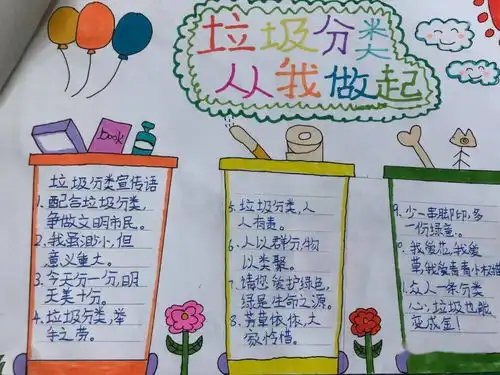 垃圾分类
从我做起
book
垃圾分类宣传语
1、配合垃圾分类,
争做文明市民。
2、我虽渺小,但
意义重大。
3、今天分一分,明
天美十分。
4、垃圾分类,举
手之劳。
5、垃圾分类,人
人有责。
6、人以群分,物
以类聚。
7、请您爱护绿色,
绿是生命之源。
8、芳草依依,大
家怜惜。
9、少一串脚印,多
一份绿意。
0、我爱花,我爱
草,我爱青青小
1、众人一条分类
心,垃圾也能
变成金!